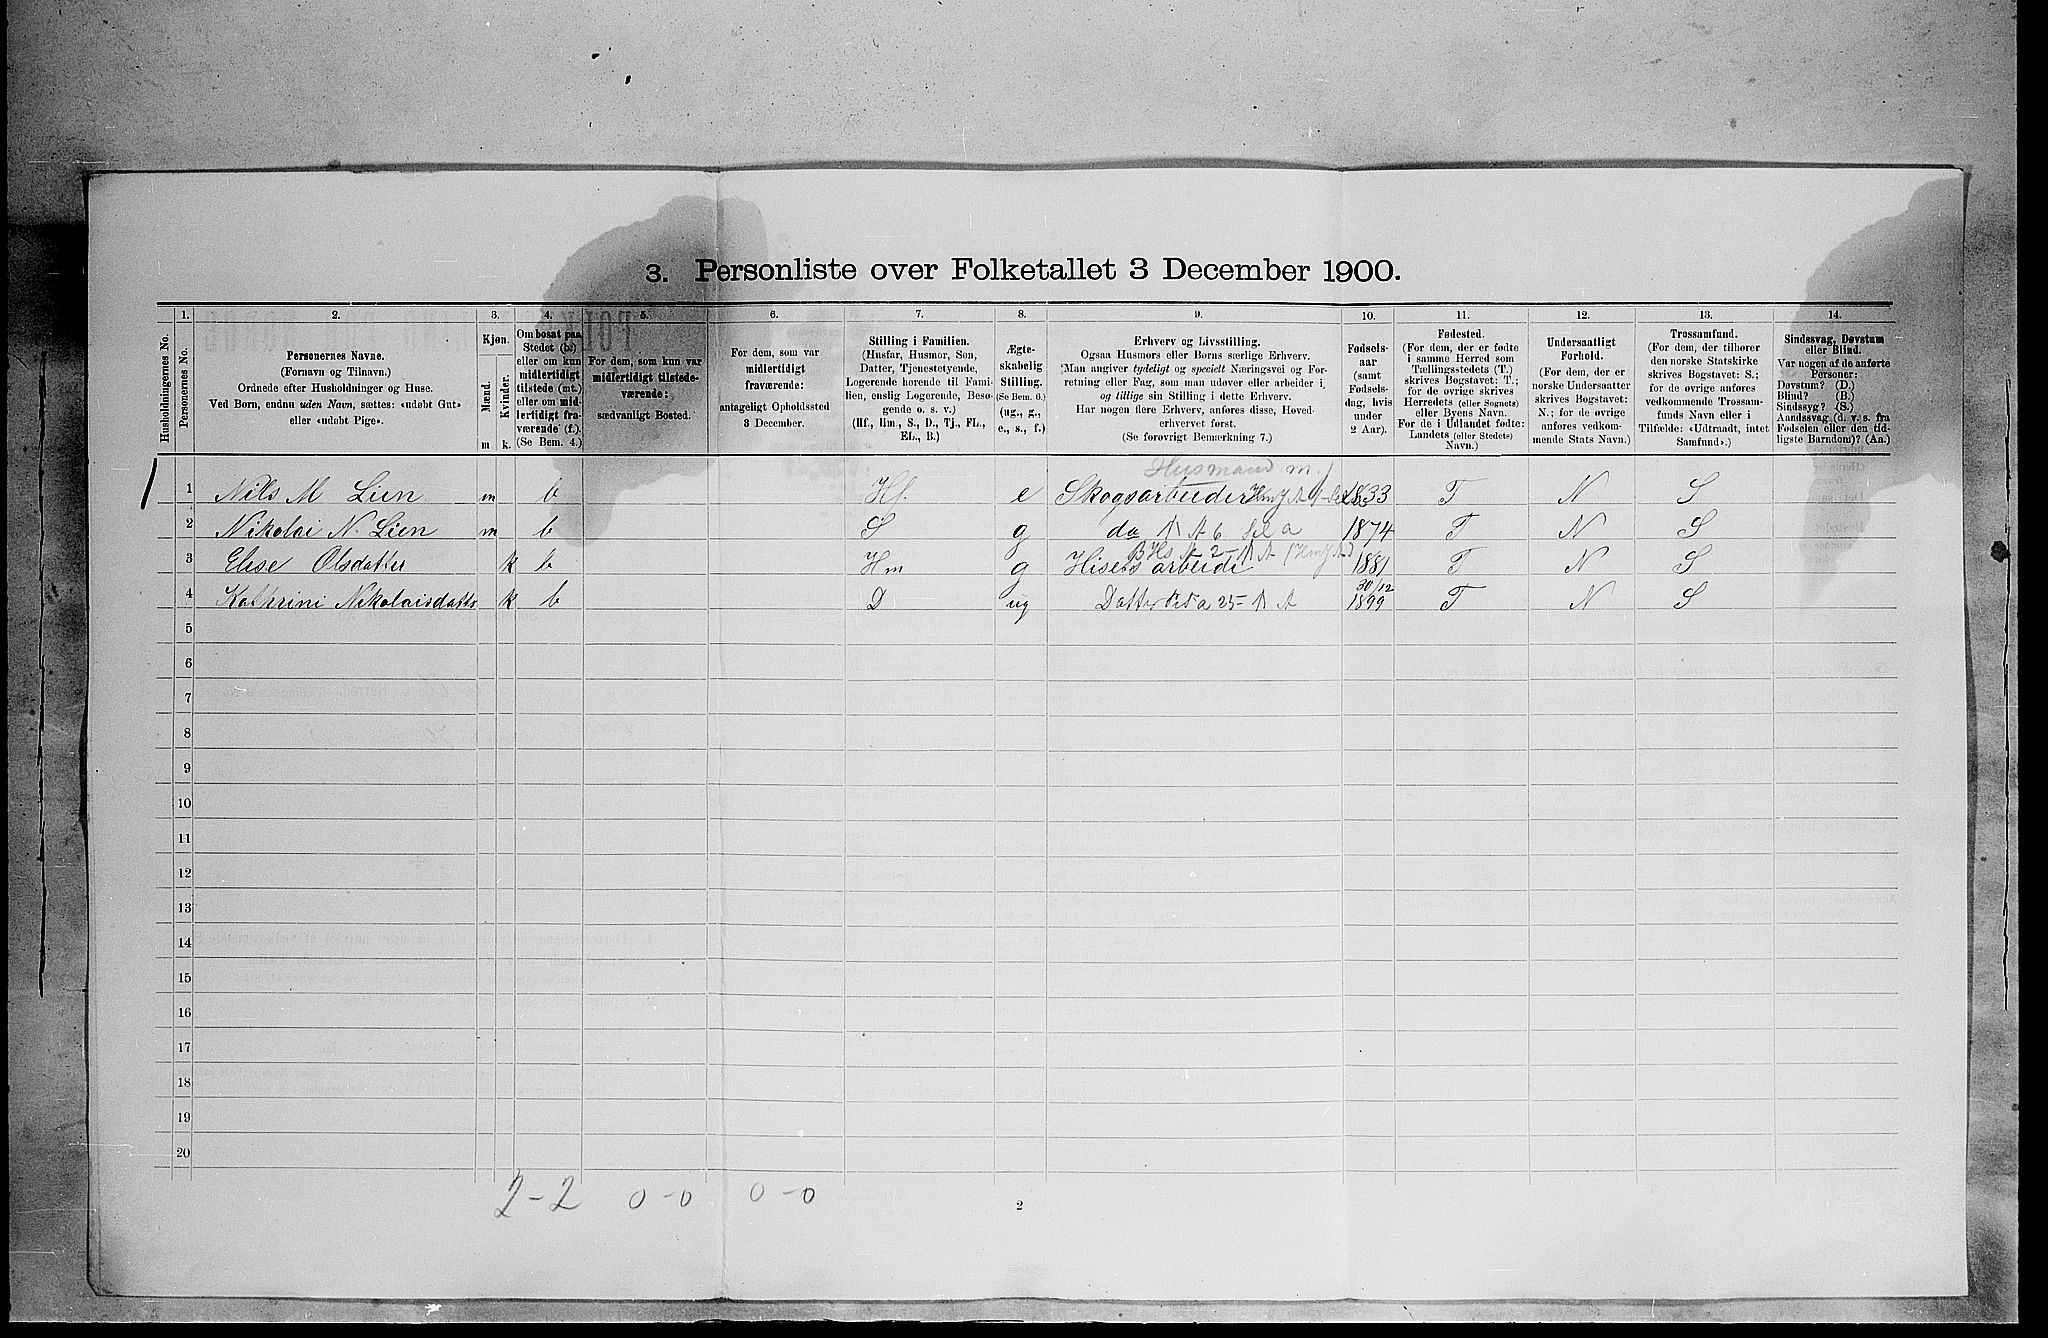 3. Personliste over Folketallet 3 December 1900.
Husholdningernes No.
1.
Personernes No.
2.
Personernes Navne.
(Fornavn og Tilnavn.)
Ordnede efter Husholdninger og Huse.
Ved Børn, endnu uden Navn, sættes: «udøbt Gut»
eller «udøbt Pige».
3.
Kjøn.
Mænd.
Kvinder.
m
k.
4.
Om bosat paa
Stedet (b.)
eller om kun
midlertidigt
tilstede (mt.)
eller om mid-
lertidigt fra-
værende (f.).
(Se Bem. 4.)
5.
For dem, som kun var
midlertidigt tilstede-
værende:
sædvanligt Bosted.
6.
For dem, som var
midlertidigt
fraværende:
antageligt Opholdssted
3 December.
7.
Stilling i Familien.
(Husfar, Husmor, Søn,
Datter, Tjenestetyende,
Logerende hørende til Fami-
lien, enslig Logerende, Besø-
gende o. s. v.)
(Hf., Hm., S., D., Tj., FL.,
EL., B.)
8.
Ægte-
skabelig
Stilling.
(Se Bem. 6.)
(ug., g.,
e., s., f.)
9.
Erhverv og Livsstilling.
Ogsaa Husmors eller Børns særlige Erhverv.
Man angiver tydeligt og specielt Næringsvei og For-
retning eller Fag, som man udøver eller arbeider i,
og tillige sin Stilling i dette Erhverv.
Har nogen flere Erhverv, anføres disse, Hoved-
erhvervet først.
(Se forøvrigt Bemærkning 7.)
10.
Fødsels-
aar
(samt
Fødsels-
dag, hvis
under
2 Aar).
11.
Fødested.
(For dem, der er fødte
i samme Herred som
Tællingsstedets (T.)
skrives Bogstavet: T.;
for de øvrige skrives
Herredets (eller Sognets)
eller Byens Navn.
For de i Udlandet fødte:
Landets (eller Stedets)
Navn.)
12.
Undersaatligt
Forhold.
(For dem, der er
norske Undersaatter
skrives Bogstavet:
N.; for de øvrige
anføres vedkom-
mende Stats Navn.)
13.
Trossamfund.
(For dem, der tilhører
den norske Statskirke
skrives Bogstavet: S.;
for de øvrige anføres
vedkommende Trossam-
funds Navn eller i
Tilfælde: «Udtraadt, intet
Samfund».)
14.
Sindssvag, Døvstum
eller Blind.
Var nogen af de anførte
Personer:
Døvstum? (D.)
Blind? (B.)
Sindssyg? (S.)
Aandssvag (d. v. s. fra
Fødselen eller den tid-
ligste Barndom)? (Aa.)
Husmand m. J
1 Nils M Lien m b Hf. e Skogsarbeider 1833 T N S
2 Nikolai N. Lien m b S g do 1874 T N S
3 Elise Olsdatter k b Hm g arbeide 1881 T N S
30/12
4 Kathrini Nikolaisdatter k b D ug Datter 1899 T N S
5
6
7
8
9
10
11
12
13
14
15
16
17
18
19
20
2-2 0-0 0-0
2